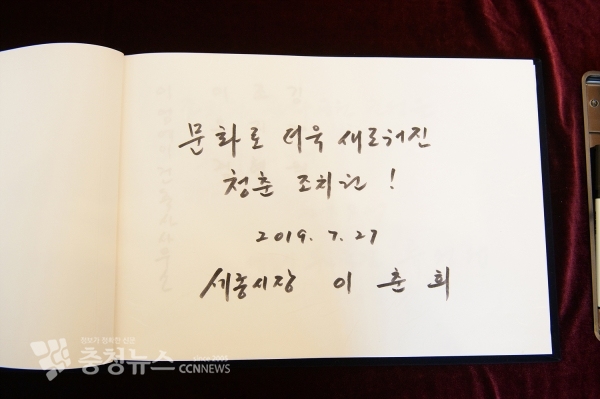 문화로 더욱 새로워진
청춘 조치원 !
2019. 7. 27
세종시장 이 춘 희
충청뉴스
CCNNEWS